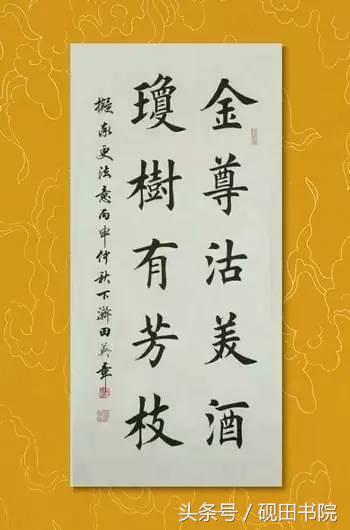 金尊沽美酒
瓊樹有芳枝
擬永更法意丙申仲秋下澣田英章
头条号／砚田书院